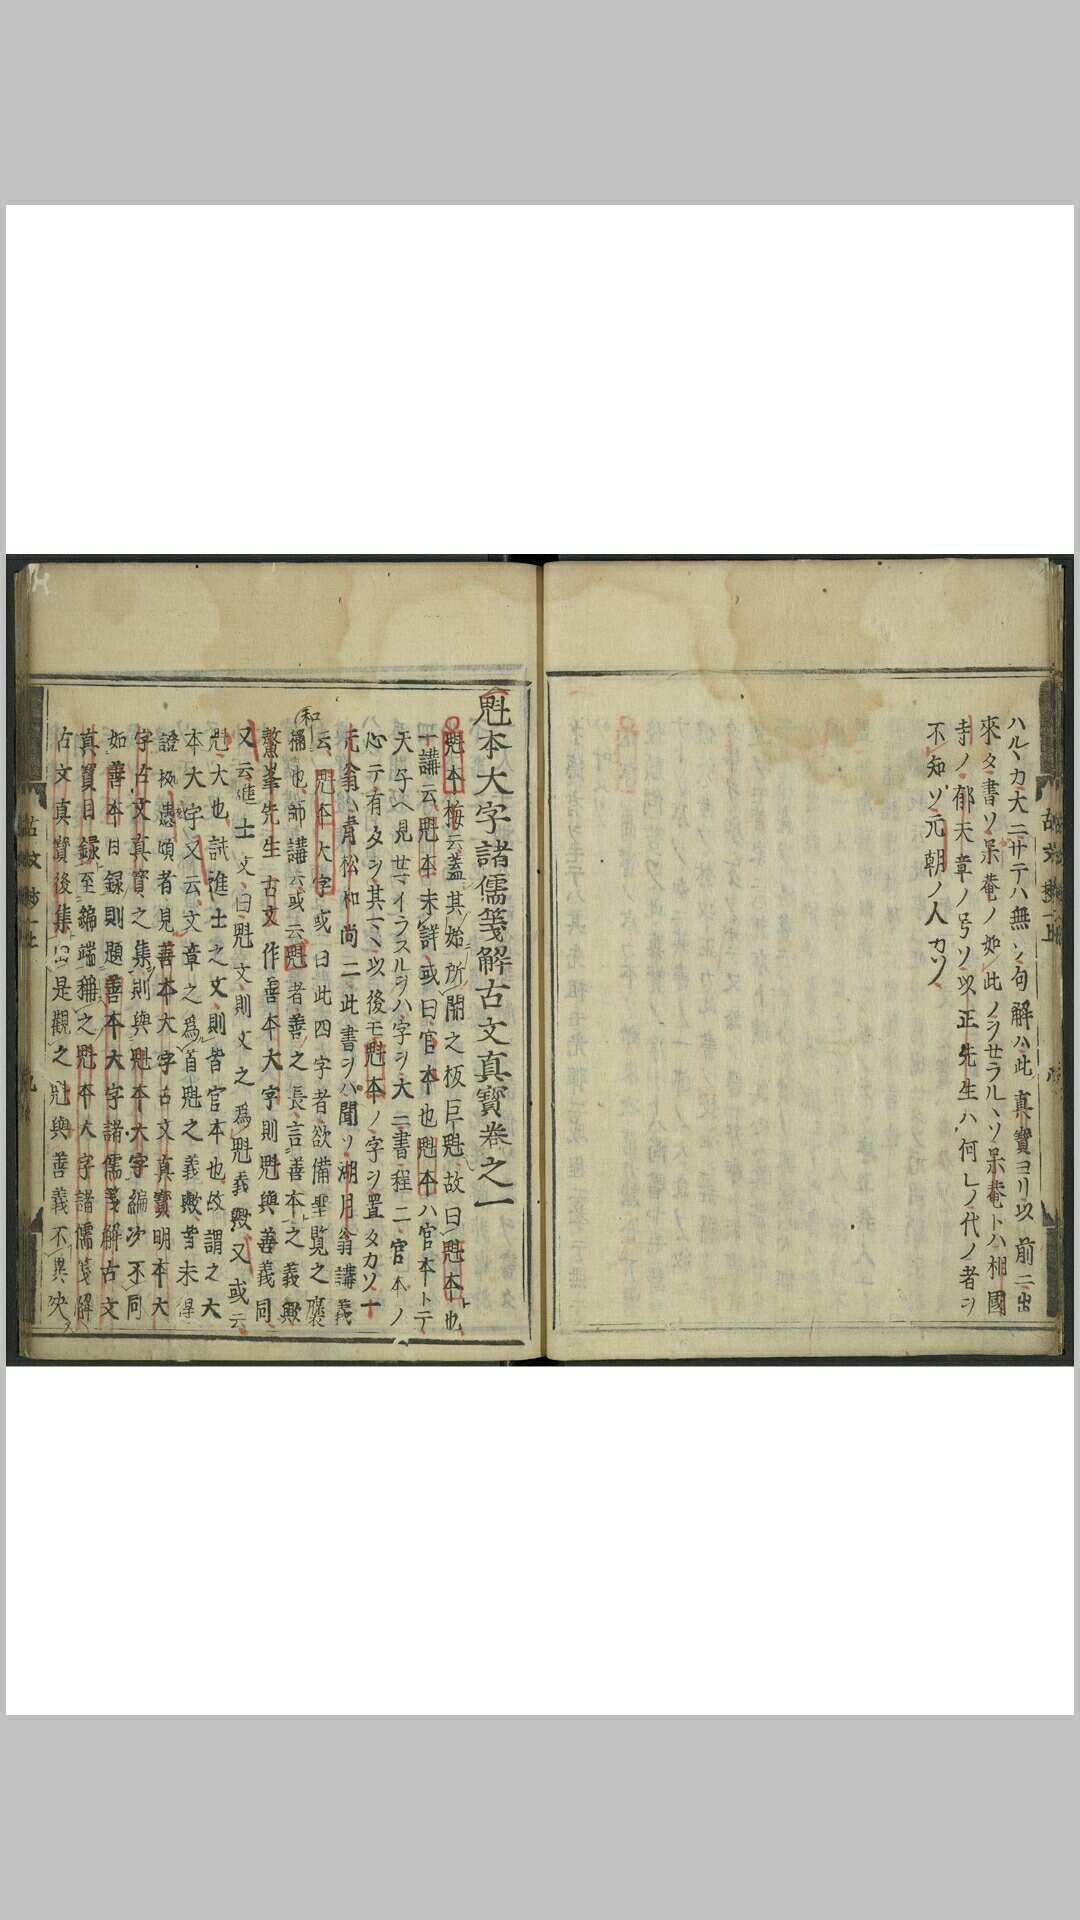 ハル丶カ大ニサテハ無ソ句解ハ此真寶ヨリ以前ニ出
來タ書ソ呆菴ノ如此ノヲせラル丶ソ呆菴トハ相國
寺ノ郁天章ノ号ソ以正先生ハ何レノ代ノ者ヲ
不知ソ元朝ノ人カソ
魁本大字諸儒箋解古文真寳卷之一
魁本梅云蓋其始所開之板巨魁故曰魁本也
一講云魁本未詳或曰官本也魁本ハ官本トテ
天子ヘ見せマイラスルヲハ字ヲ大ニ書程ニ官本ノ
心テ有タヲ其丶以後モ魁本ノ字ヲ置タカソ十
先翁青松和尚ニ此書ヲハ聞ソ湖月翁講義
云魁本大字或曰此四字者欲備聖覧之褒
和
稱也師講云或云魁者善之長言善本之義歟
鰲峯先生古文作善本大字則魁與善義同
又云進士文曰魁文則文之爲魁義歟又或云
魁大也試進士之文則皆官本也故謂之大
本大字又云文章之爲首魁之義歟未得
證據頃者見善本大字古文真寳明本大
字古文真寳之集則與魁本大字編次不同
如善本目録則題善本大字諸儒箋解古文
真寳目録至編端稱之魁本大字諸儒箋解
古文真寳後集以是觀之魁與善義不異矣